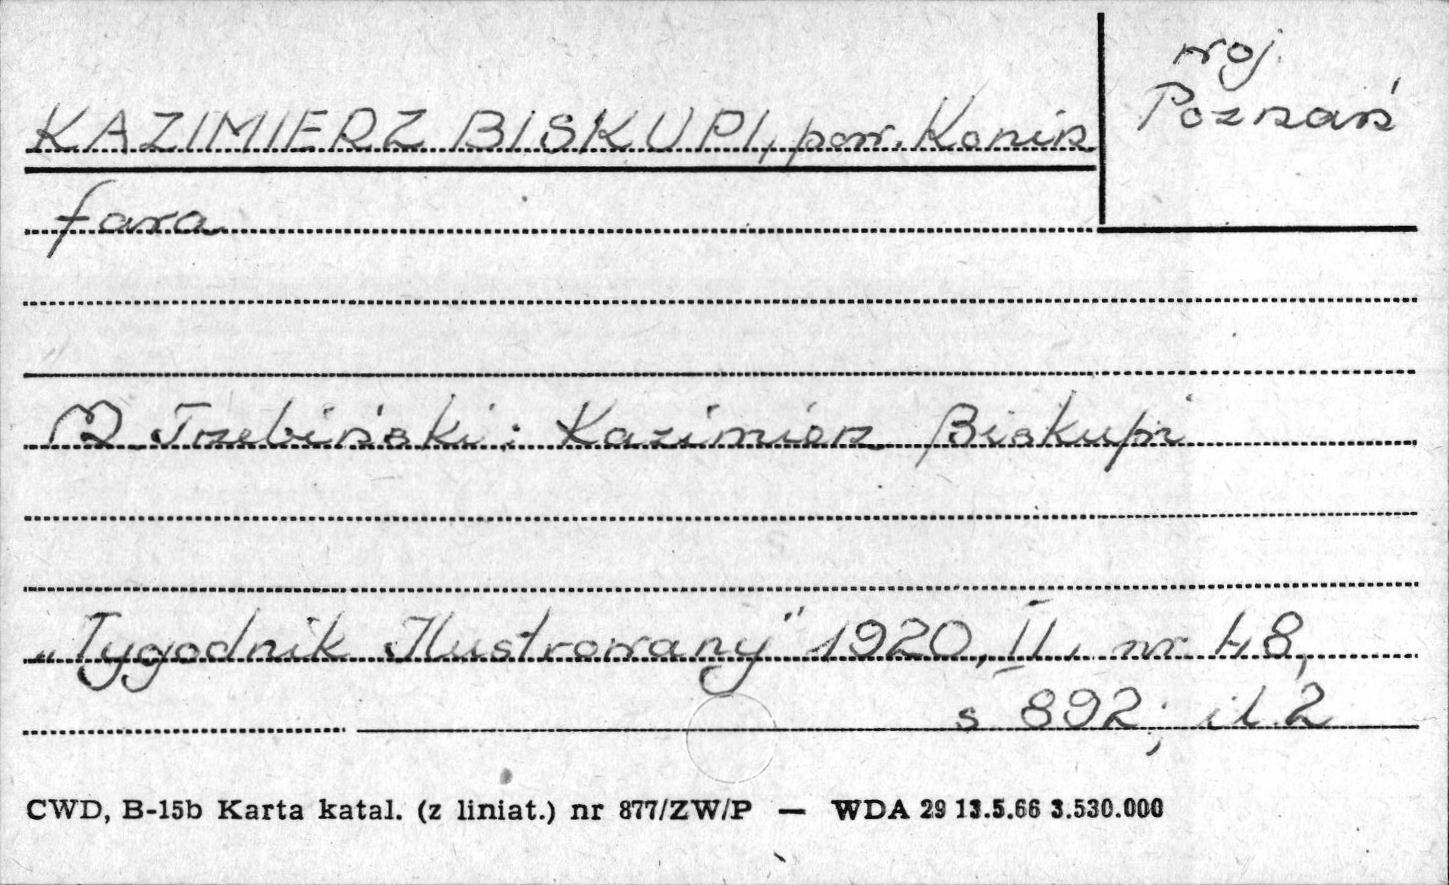 KAZIMIERZ BISKUPI, pow. Konin
woj.
Poznań
fara
M Trzebiński: Kazimierz Biskupi
„Tygodnik Ilustrowany" 1920, II, nr 48,
s 892; il. 2
CWD, B-15b Karta katal. (z liniat.) nr 877/ZW/P — WDA 29 13.5.66 3.530.000